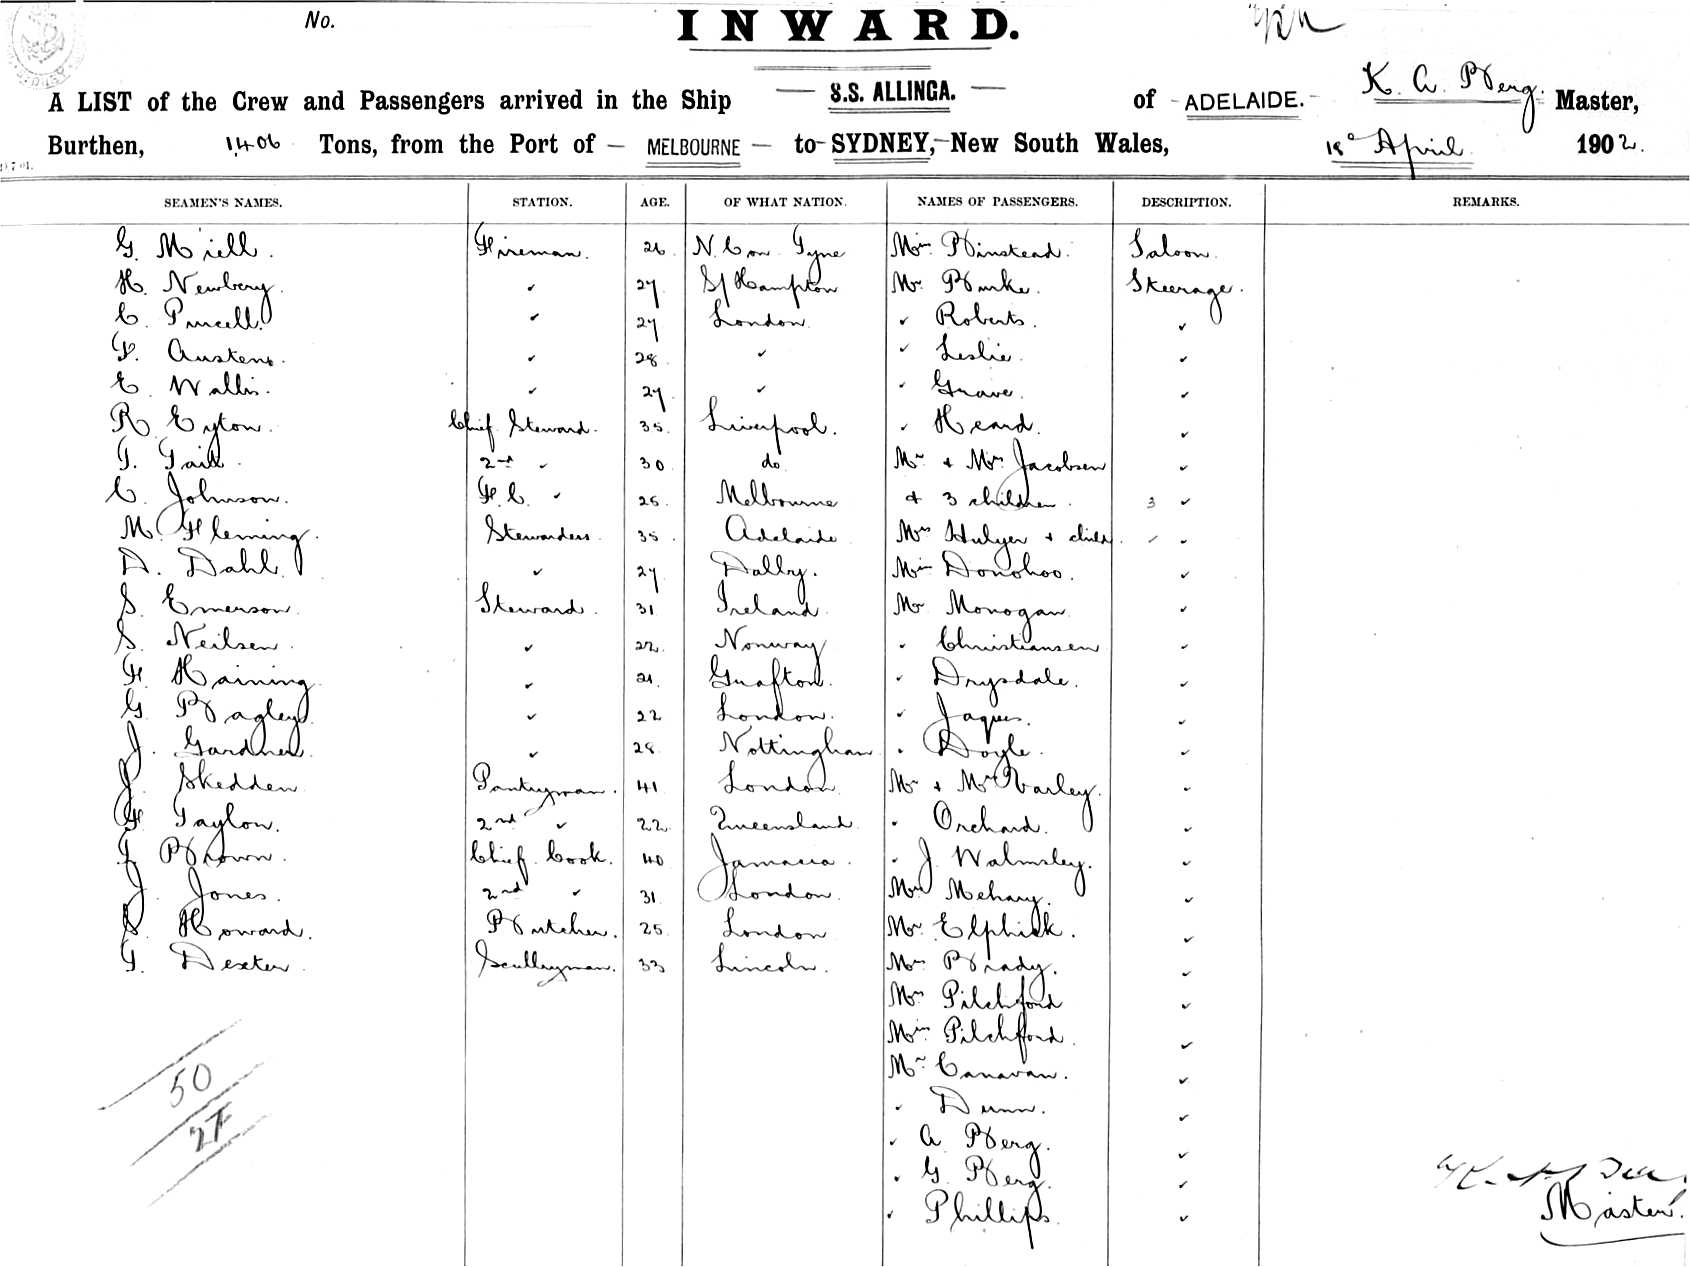 No.
INWARD.
A LIST of the Crew and Passengers arrived in the Ship — S.S. ALLINGA. — of - ADELAIDE. - K. A. Berg. Master,
Burthen, 1,406 Tons, from the Port of — MELBOURNE — to SYDNEY, New South Wales, 18 April 1902.
SEAMEN'S NAMES. STATION. AGE. OF WHAT NATION. NAMES OF PASSENGERS. DESCRIPTION. REMARKS.
G. Miell. Fireman. 26. N. Con Tyne Miss Binstead. Saloon.
H. Newbery. " 27 S/Hampton Mr. Burke. Steerage.
C. Purcell. " 27 London. " Roberts. "
F. Austens. " 28. " " Leslie. "
E. Wallis. " 27. " " Grave. "
R. Eyton. Chief Steward. 35. Liverpool. " Heard. "
T. Tait. 2nd " 30. do Mr & Mrs Jacobsen "
C. Johnson. F.C. " 25. Melbourne & 3 children. 3 "
M. Fleming. Stewardess. 35. Adelaide Mrs Hulyer & child. "
D. Dahl. " 27 Dalby. Miss Donohoo. "
S. Emerson. Steward. 31 Ireland. Mr Monogan "
S. Neilsen. " 22. Norway " Christiansen "
F. Haining. " 21. Grafton. " Drysdale. "
G. Bagley. " 22 London. " Jaques. "
J. Gardner. " 28. Nottingham " Doyle. "
J. Skedden Pantryman. 41. London. Mr & Mrs Varley. "
F. Taylor. 2nd " 22. Queensland. " Orchard. "
J. Brown. Chief Cook. 40 Jamacia. " J. Walmsley. "
J. Jones. 2nd " 31. London. Mrs Mehany. "
S. Howard. Butcher. 25. London Mr Elphick. "
T. Dexter. Scullryman. 33 Lincoln. Mrs Brady. "
Mrs Pilchford "
Miss Pilchford. "
Mr Canavan. "
" Dunn. "
" A Berg. "
" G. Berg. "
" Phillips. "
50
27
Master.